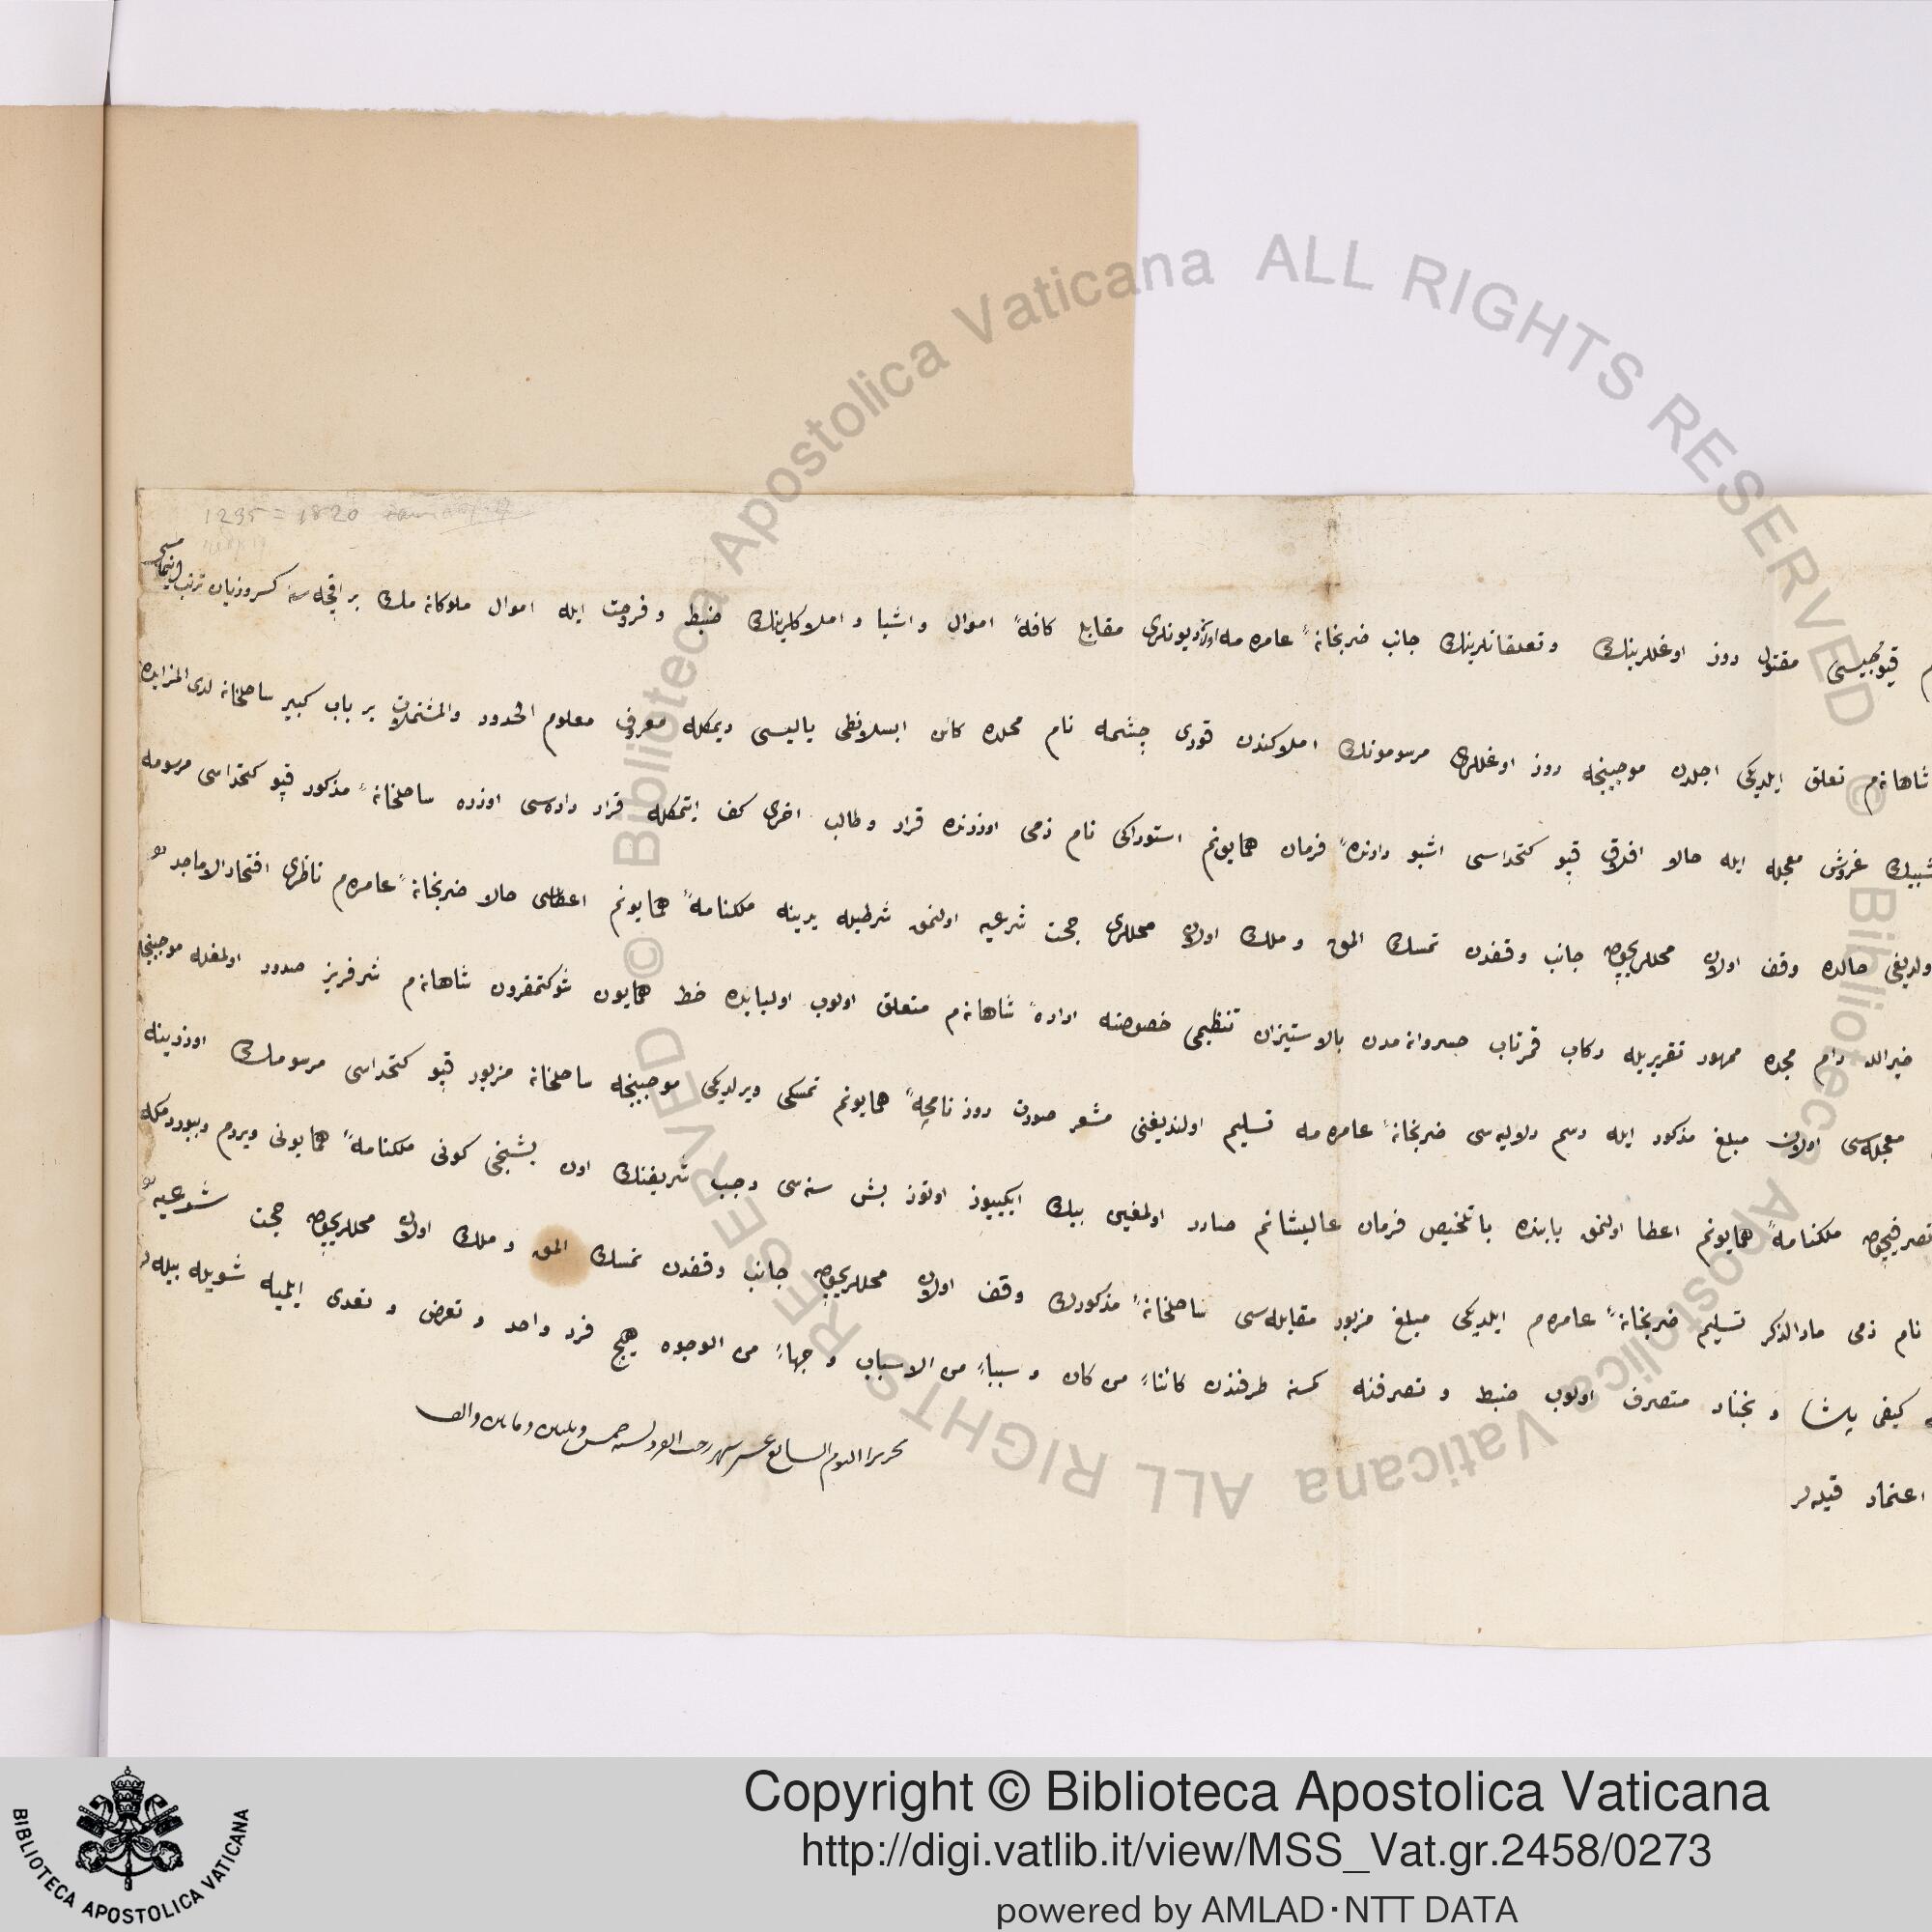 1235 = 1820
قپوچیسی مقتول دوز اوغللرینك وتعلقاتلرینك جانب ضربخانهٔ عامره مه اولان دیونلری مقابلی كافهٔ اموال و اشیا و املاكلرینك ضبط و فروخت ایله اموال ملوكانه مك بر اقچه سنه كسر و زیان ترتب ایتمامسی
شاهانه م تعلق ایلدیكی اجلدن موجبنجه دوز اوغللری مرسومونك املاكندن قوری چشمه نام محلده كائن ایسلانطی یالیسی دیمكله معروف معلوم الحدود والمشتملات بر باب كبیر ساحلخانه لدی المزایده
بیك غروش معجله ایله حالا افلاق قپو كتخداسی اشبو دارنده فرمان همایونم استوراكی نام ذمی اوزرنده قرار و طالب اخری كف ایتمكله قرار داده سی اوزره ساحلخانهٔ مذكور قپو كتخداسی مرسومه
اولدیغی حالده وقف اولان محللریچون جانب وقفدن تمسك المق و ملك اولان محللری حجت شرعیه اولنمق شرطیله یدینه ملكنامهٔ همایونم اعطاسی حالا ضربخانهٔ عامره م ناظری افتخار الاماجد
خیرالله دام مجده ممهور تقریریله ركاب قمرتاب خسروانه مدن بالاستیذان تنظیمی خصوصنه ارادهٔ شاهانه م متعلق اولوب اولبابده خط همایون شوكتمقرون شاهانه م شرفریز صدور اولمغله موجبنجه
معجله سی اولان مبلغ مذكور ایله رسم دلالیه سی ضربخانهٔ عامره مه تسلیم اولندیغنی مشعر صورت روزنامچهٔ همایونم تمسكی ویرلدیكی موجبنجه ساحلخانه مزبور قپو كتخداسی مرسومك اوزرینه
تصرفیچون ملكنامهٔ همایونم اعطا اولنمق بابنده با تلخیص فرمان عالیشانم صادر اولمغین بیك ایكییوز اوتوز بش سنه سی رجب شریفنك اون بشنجی كونی ملكنامهٔ همایونی ویردم و بیوردمكه
نام ذمی مارالذكر تسلیم ضربخانهٔ عامره م ایلدیكی مبلغ مزبور مقابله سی ساحلخانهٔ مذكورك وقف اولان محللریچون جانب وقفدن تمسك المق و ملك اولان محللریچون حجت شرعیه
كیفی یشا و یختار متصرف اولوب ضبط و تصرفنه كمسنه طرفندن كائنا من كان و سببا من الاسباب و جها من الوجوه هیچ فرد واحد و تعرض و تعدی ایلمیه شویله بیله لر
اعتماد قیله لر
تحریرا الیوم السابع عشر شهر رجب الفرد لسنه خمس وثلثین ومأتین والف
Copyright © Biblioteca Apostolica Vaticana
http://digi.vatlib.it/view/MSS_Vat.gr.2458/0273
powered by AMLAD·NTT DATA
BIBLIOTECA APOSTOLICA VATICANA
© Biblioteca Apostolica Vaticana ALL RIGHTS RESERVED
© Biblioteca Apostolica Vaticana ALL RIGHTS RESERVED